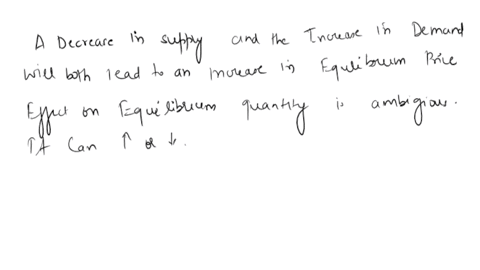 A Decrease in supply and the Increase in Demand
will both lead to an increase in Equlibrium Price
Effect on Equilibrium quantity is ambigiou.
It Can ↑ or ↓.